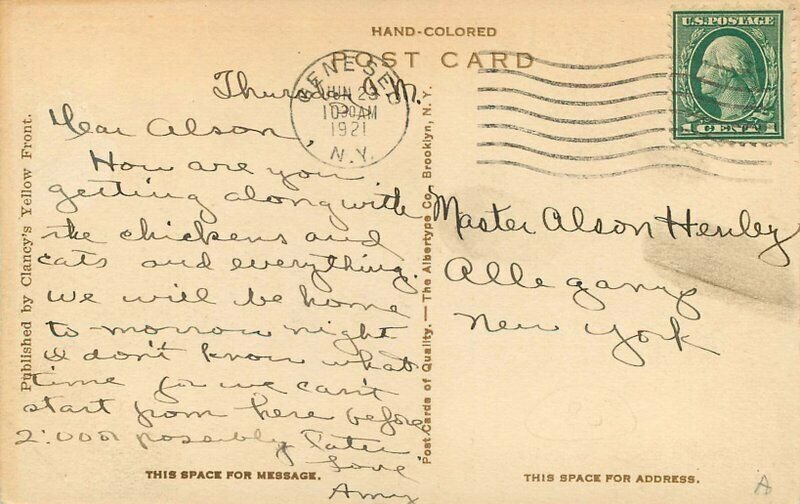 HAND-COLORED
POST CARD
U.S. POSTAGE
1 CENT 1
GENESEO
JUN 23
10 30 AM
1921
N.Y.
Thursday A.M.
Dear Alson,
How are you
getting along with
the chickens and
cats and everything.
We will be home
to morrow night
I don't know what
time for we can't
start from here before
2:00 or possibly later
Love
Amy
Master Alson Henley
Allegany
New York
Published by Clancy's Yellow Front.
Post Cards of Quality. — The Albertype Co., Brooklyn, N. Y.
THIS SPACE FOR MESSAGE.
THIS SPACE FOR ADDRESS.
A